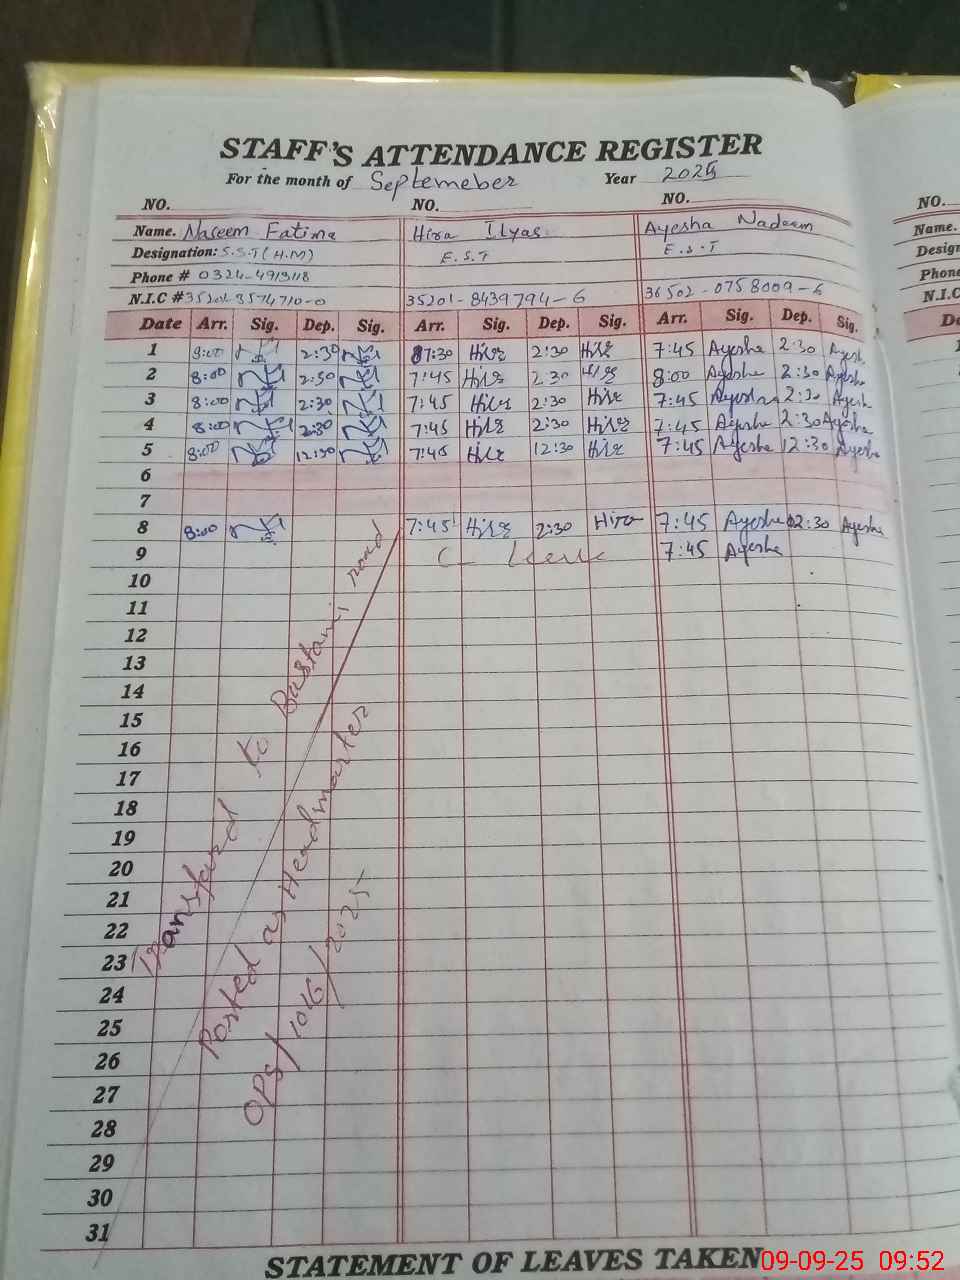 STAFF'S ATTENDANCE REGISTER
For the month of Septemeber Year 2025
NO. NO. NO. NO.
Name. Naseem Fatima Hira Ilyas Ayesha Nadeem Name.
Designation: S.S.T (H.M) E.S.T E.S.T Design
Phone # 0324-4913118 Phone
N.I.C # 35201-3574710-0 35201-8439794-6 36502-0758009-6 N.I.C
Date Arr. Sig. Dep. Sig. Arr. Sig. Dep. Sig. Arr. Sig. Dep. Sig.
1 8:00 2:30 7:30 Hira 2:30 Hira 7:45 Ayesha 2:30 Ayesh
2 8:00 2:30 7:45 Hira 2:30 Hira 8:00 Ayesha 2:30 Ayesha
3 8:00 2:30 7:45 Hira 2:30 Hira 7:45 Ayesha 2:30 Ayesh
4 8:00 2:30 7:45 Hira 2:30 Hira 7:45 Ayesha 2:30 Ayesha
5 8:00 12:30 7:45 Hira 12:30 Hira 7:45 Ayesha 12:30 Ayesha
6
7
8 8:00 7:45 Hira 2:30 Hira 7:45 Ayesha 2:30 Ayesha
9 C Leave 7:45 Ayesha
10
11
12
13
14
15
16
17
18
19
20
21
22
23
24
25
26
27
28
29
30
31
Transfard to Bastami road
Posted as Headmaster
OPS/1016/2025
STATEMENT OF LEAVES TAKEN
09-09-25 09:52